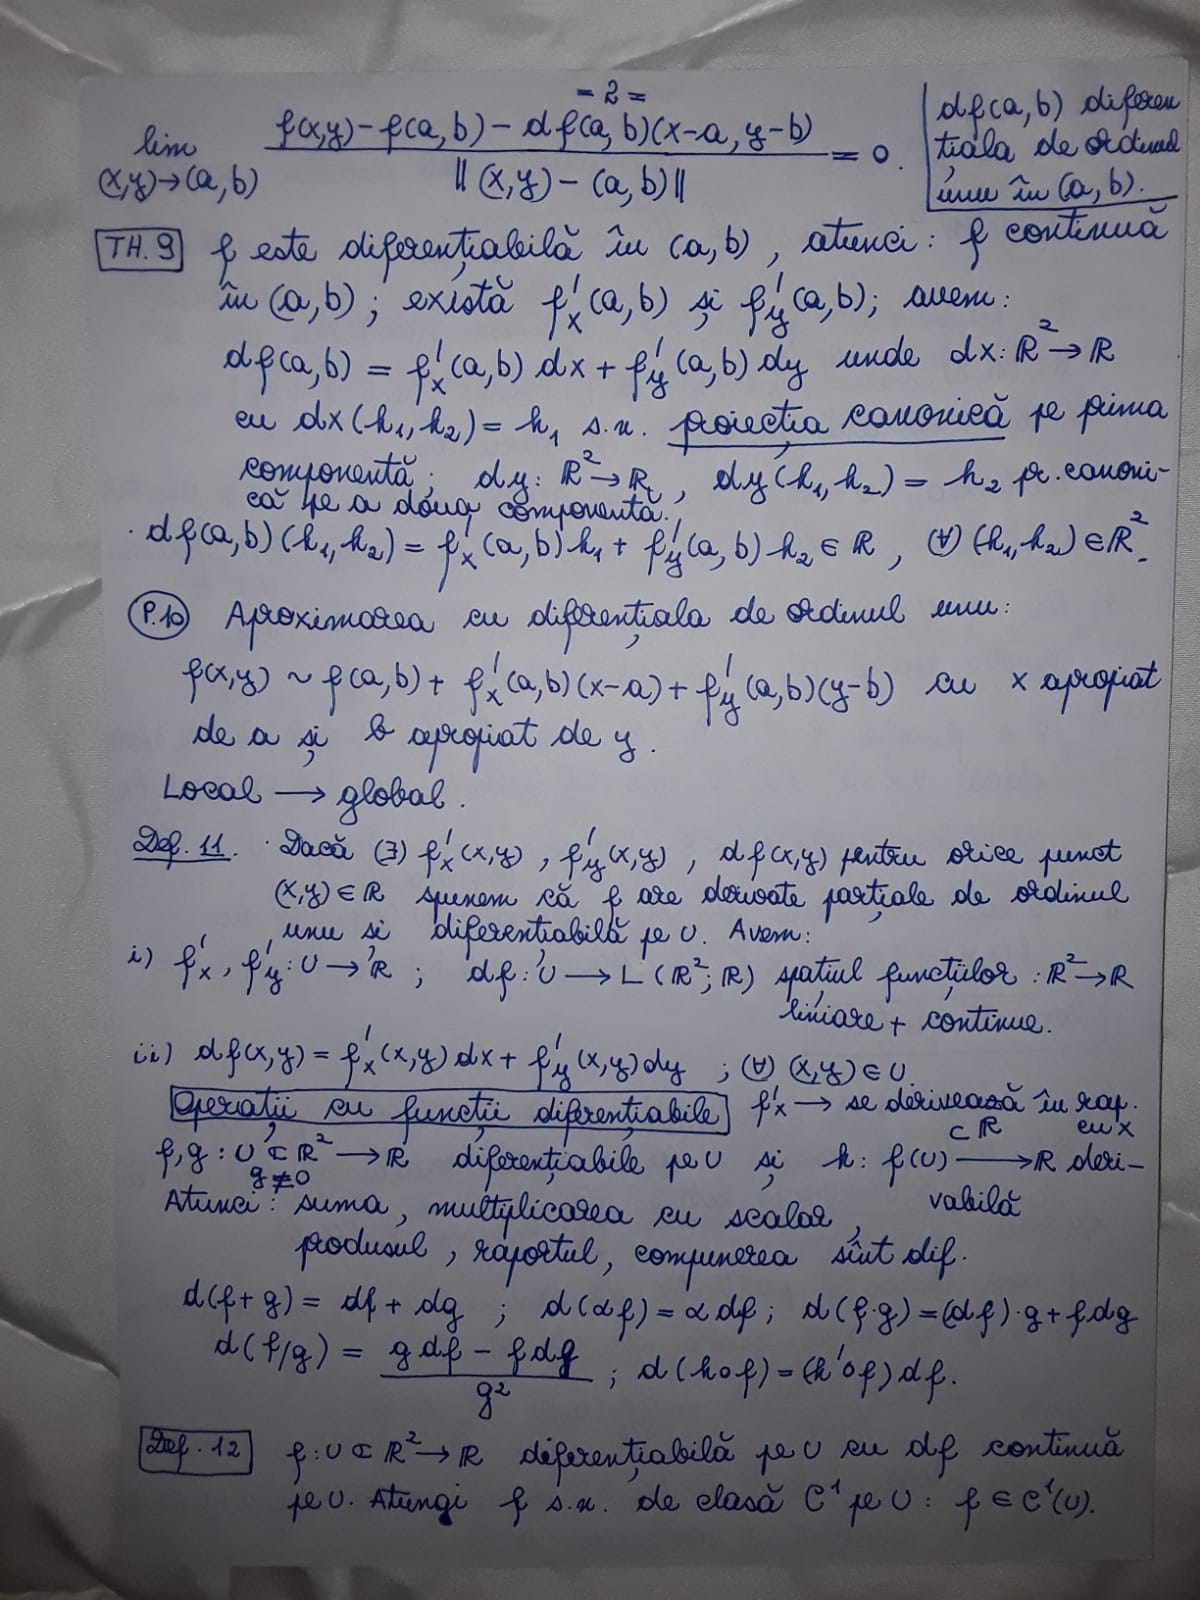 - 2 -
lim (x,y)→(a,b) (f(x,y)-f(a,b)-df(a,b)(x-a,y-b)) / ||(x,y)-(a,b)|| = 0.
df(a,b) diferen
țiala de ordinul
unu în (a,b).
TH.9 f este diferențiabilă în (a,b), atunci: f continuă
în (a,b); există f'x(a,b) și f'y(a,b); avem:
df(a,b) = f'x(a,b) dx + f'y(a,b) dy unde dx: ℝ²→ℝ
cu dx(h₁,h₂)=h₁ s.n. proiecția canonică pe prima
componentă; dy: ℝ²→ℝ, dy(h₁,h₂) = h₂ pr. canoni-
că pe a doua componentă.
· df(a,b)(h₁,h₂) = f'x(a,b)h₁ + f'y(a,b)h₂ ∈ ℝ, (∀)(h₁,h₂)∈ℝ².
P.10 Aproximarea cu diferențiala de ordinul unu:
f(x,y) ~ f(a,b) + f'x(a,b)(x-a) + f'y(a,b)(y-b) cu x apropiat
de a și b apropiat de y.
Local → global.
Def. 11. · Dacă (∃) f'x(x,y), f'y(x,y), df(x,y) pentru orice punct
(x,y)∈ℝ spunem că f are derivate parțiale de ordinul
unu și diferențiabilă pe U. Avem:
i) f'x, f'y: U→ℝ; df: U→L(ℝ²;ℝ) spațiul funcțiilor: ℝ²→ℝ
liniare + continue.
ii) df(x,y) = f'x(x,y)dx + f'y(x,y)dy; (∀)(x,y)∈U
Operații cu funcții diferențiabile f'x → se derivează în rap.
cu x
f,g: U⊂ℝ²→ℝ diferențiabile pe U și h: f(U)⊂ℝ→ℝ deri-
g≠0
Atunci: suma, multiplicarea cu scalar, vabilă
produsul, raportul, compunerea sînt dif.
d(f+g) = df + dg; d(αf) = α df; d(f·g) = (df)·g + f dg
d(f/g) = (g df - f dg) / g²; d(h∘f) = (h'∘f) df.
Def. 12 f: U⊂ℝ²→ℝ diferențiabilă pe U cu df continuă
pe U. Atungi f s.n. de clasă C¹ pe U: f ∈ C¹(U).